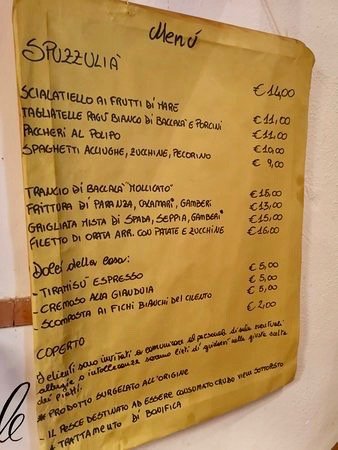 Menú
SPUZZULIÀ € 14,00
SCIALATIELLO AI FRUTTI DI MARE € 11,00
TAGLIATELLE RAGÙ BIANCO DI BACCALÀ E PORCINI € 11,00
PACCHERI AL POLIPO € 10,00
SPAGHETTI ACCIUGHE, ZUCCHINE, PECORINO € 9,00
TRANCIO DI BACCALÀ "MOLLICATO" € 15,00
FRITTURA DI PARANZA, CALAMARI*, GAMBERI € 13,00
GRIGLIATA MISTA DI SPADA, SEPPIA, GAMBERI* € 15,00
FILETTO DI ORATA ARR. CON PATATE E ZUCCHINE € 16,00
Dolci della casa:
- TIRAMISÙ ESPRESSO € 5,00
- CREMOSO ALLA GIANDUIA € 5,00
- SCOMPOSTA AI FICHI BIANCHI DEL CILENTO € 5,00
COPERTO € 2,00
I clienti sono invitati a comunicare al personale di sala eventuali
allergie o intolleranze saranno lieti di guidarvi nella giusta scelta
dei piatti.
* PRODOTTO SURGELATO ALL'ORIGINE
- IL PESCE DESTINATO AD ESSERE CONSUMATO CRUDO VIENE SOTTOPOSTO
* TRATTAMENTO DI BONIFICA